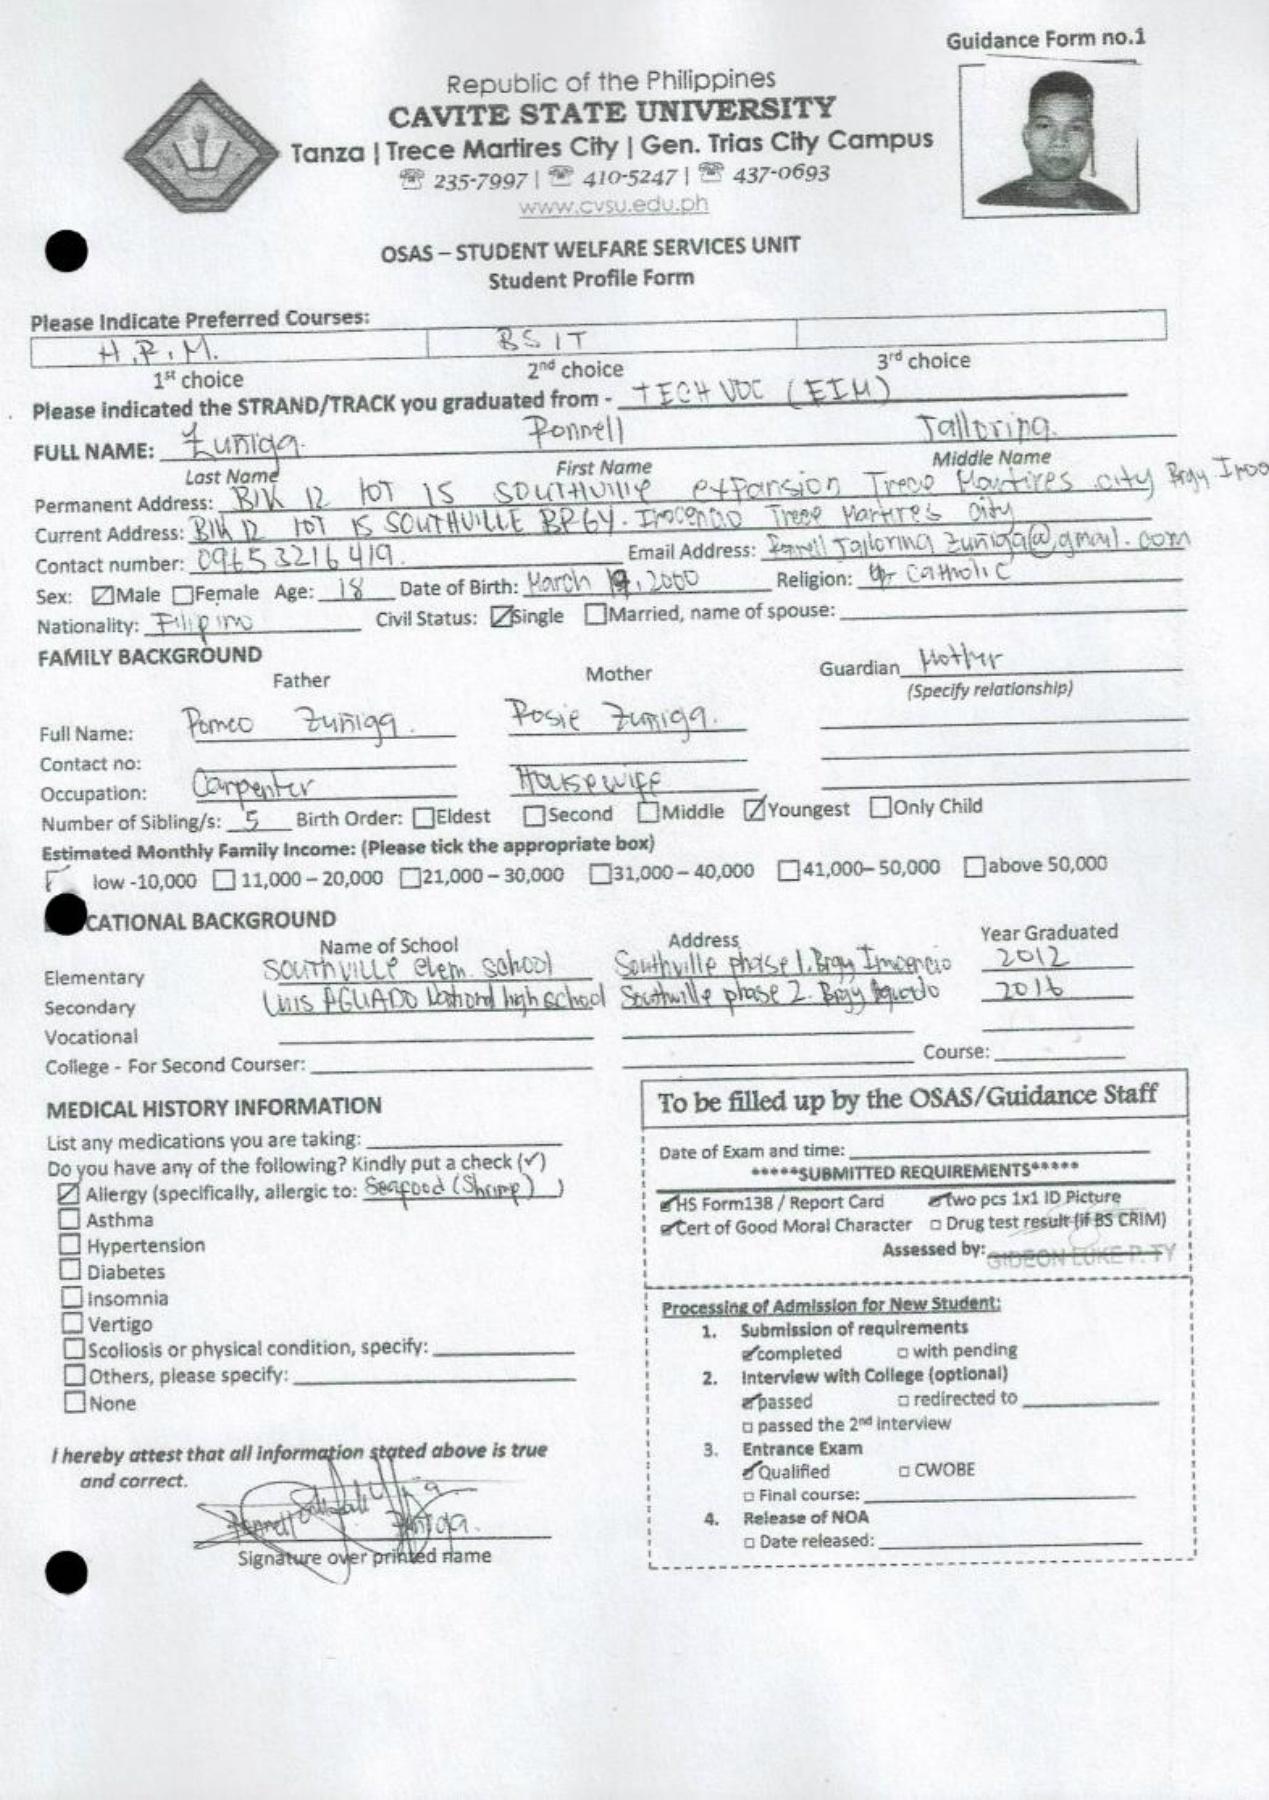 Guidance Form no.1
Republic of the Philippines
CAVITE STATE UNIVERSITY
Tanza | Trece Martires City | Gen. Trias City Campus
☏ 235-7997 | ☏ 410-5247 | ☏ 437-0693
www.cvsu.edu.ph
OSAS – STUDENT WELFARE SERVICES UNIT
Student Profile Form
Please Indicate Preferred Courses:
H.R.M. BSIT
1st choice 2nd choice 3rd choice
Please indicated the STRAND/TRACK you graduated from - TECH VOC (EIM)
FULL NAME: Zuñiga Ronnell Talloring
Last Name First Name Middle Name
Permanent Address: Blk 12 lot 15 SOUTHVILLE expansion Trece Martires city Brgy Inoc
Current Address: Blk 12 lot 15 SOUTHVILLE BRGY. Inocencio Trece Martires City
Contact number: 09653216419. Email Address: Ronnell Talloring Zuñiga@gmail.com
Sex: ☑Male ☐Female Age: 18 Date of Birth: March 19, 2000 Religion: Catholic
Nationality: Filipino Civil Status: ☑Single ☐Married, name of spouse:
FAMILY BACKGROUND
Father Mother Guardian Mother
(Specify relationship)
Full Name: Romeo Zuñiga. Rosie Zuñiga.
Contact no:
Occupation: Carpenter Housewife
Number of Sibling/s: 5 Birth Order: ☐Eldest ☐Second ☐Middle ☑Youngest ☐Only Child
Estimated Monthly Family Income: (Please tick the appropriate box)
low -10,000 ☐ 11,000 – 20,000 ☐21,000 – 30,000 ☐31,000 – 40,000 ☐41,000– 50,000 ☐above 50,000
CATIONAL BACKGROUND
Name of School Address Year Graduated
Elementary SOUTHVILLE Elem. School Southville phase 1. Brgy Inocencio 2012
Secondary LUIS AGUADO National high school Southville phase 2. Brgy Aguado 2016
Vocational
College - For Second Courser: Course:
MEDICAL HISTORY INFORMATION
List any medications you are taking:
Do you have any of the following? Kindly put a check (✓)
☑ Allergy (specifically, allergic to: Seafood (Shrimp) )
☐ Asthma
☐ Hypertension
☐ Diabetes
☐ Insomnia
☐ Vertigo
☐ Scoliosis or physical condition, specify:
☐ Others, please specify:
☐ None
I hereby attest that all information stated above is true
and correct.
Ronnell Zuñiga.
Signature over printed name
To be filled up by the OSAS/Guidance Staff
Date of Exam and time:
*****SUBMITTED REQUIREMENTS*****
☑HS Form138 / Report Card ☑Two pcs 1x1 ID Picture
☑Cert of Good Moral Character ☐ Drug test result (if BS CRIM)
Assessed by: GIDEON LUKE P. TY
Processing of Admission for New Student:
1. Submission of requirements
☑completed ☐ with pending
2. Interview with College (optional)
☑passed ☐ redirected to
☐ passed the 2nd interview
3. Entrance Exam
☑Qualified ☐ CWOBE
☐ Final course:
4. Release of NOA
☐ Date released: